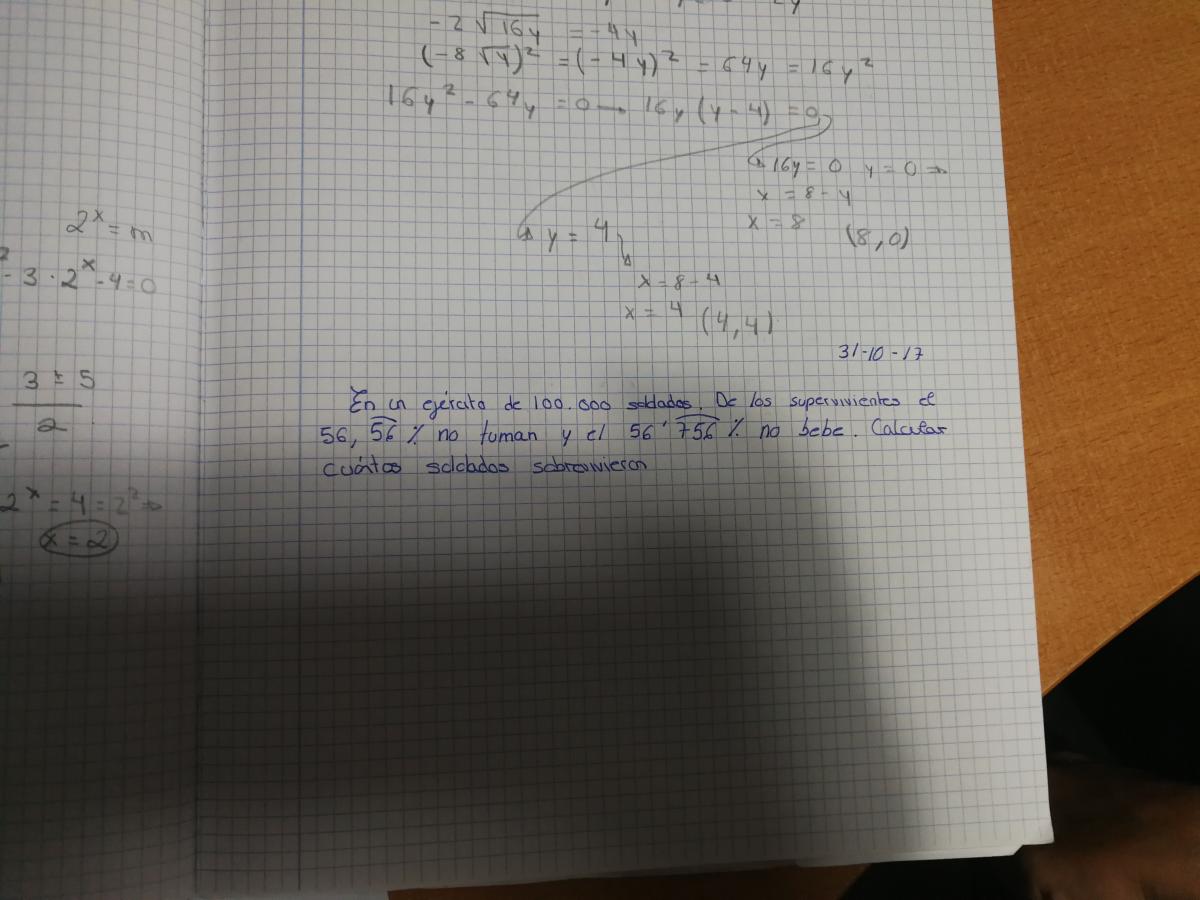 -2 √16y = -4y
(-8 √y)² = (-4y)² = 64y = 16y²
16y² - 64y = 0 → 16y (y - 4) = 0
16y = 0 y = 0 →
x = 8 - y
x = 8 (8,0)
y = 4
x = 8 - 4
x = 4 (4,4)
2^x = m
- 3 · 2^x - 4 = 0
3 ± 5
2
2^x = 4 = 2² →
x = 2
31-10-17
En un ejército de 100.000 soldados. De los supervivientes el
56, 5͞6͞ % no fuman y el 56' 7͞5͞6͞ % no bebe. Calcular
cuántos soldados sobrevivieron